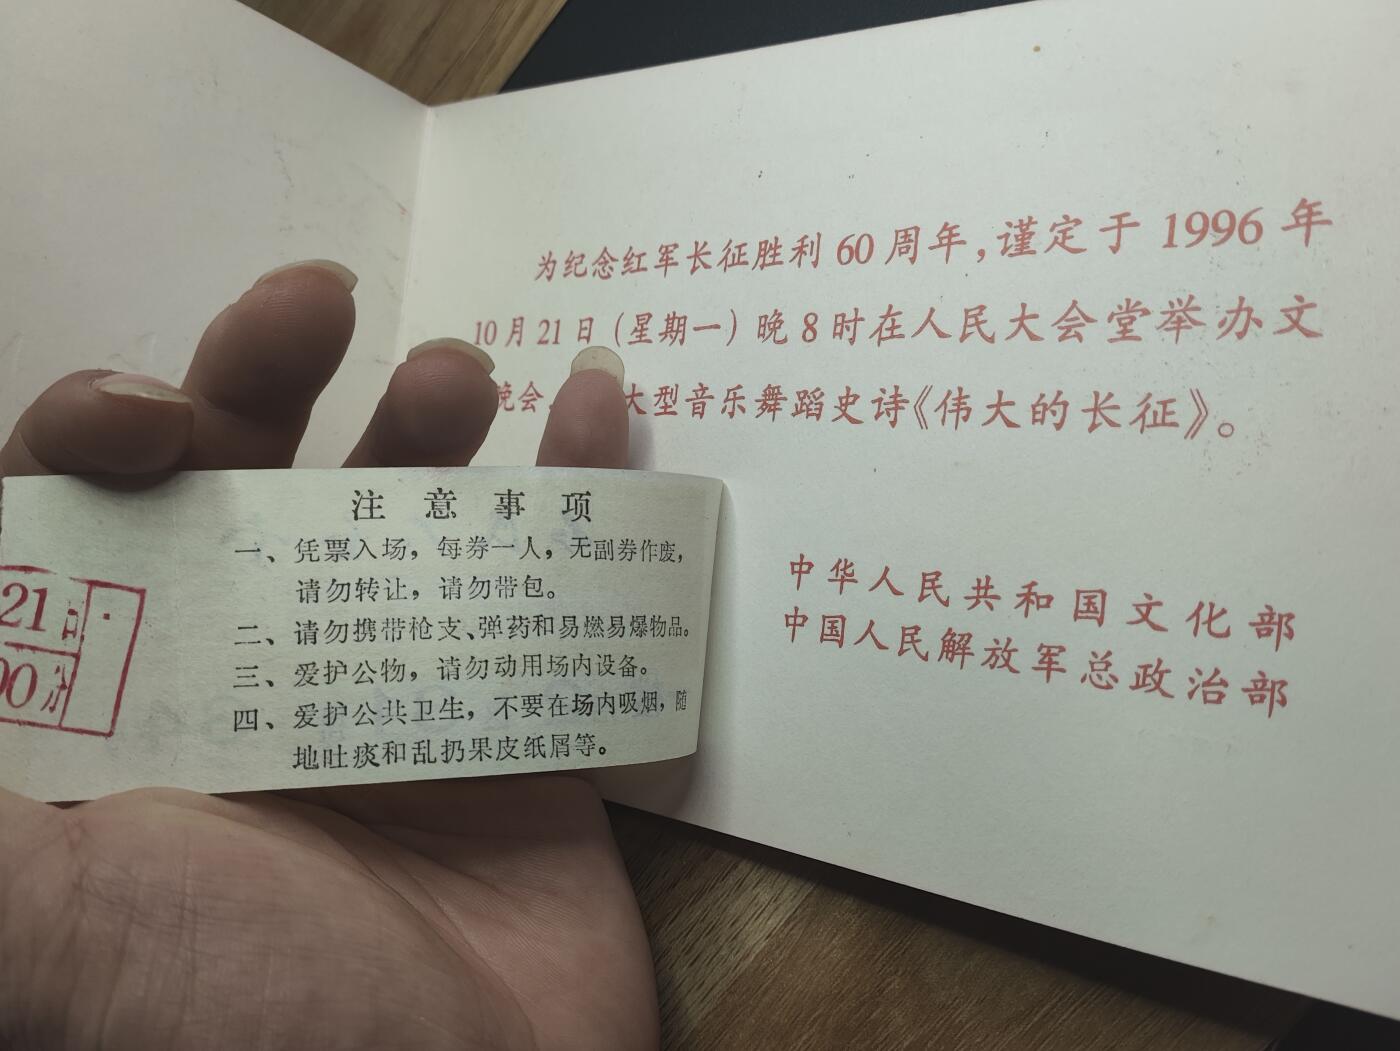 为纪念红军长征胜利60周年，谨定于1996年
10月21日（星期一）晚8时在人民大会堂举办文
晚会，大型音乐舞蹈史诗《伟大的长征》。
中华人民共和国文化部
中国人民解放军总政治部
注意事项
一、凭票入场，每券一人，无副券作废，
请勿转让，请勿带包。
二、请勿携带枪支、弹药和易燃易爆物品。
三、爱护公物，请勿动用场内设备。
四、爱护公共卫生，不要在场内吸烟，随
地吐痰和乱扔果皮纸屑等。
21日
00分